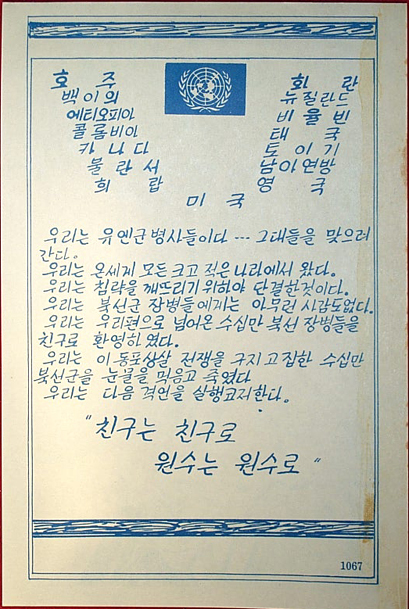 호 주 화 란
백이의 뉴질란드
에티오피아 비율빈
콜롬비아 태 국
카나다 토이기
불란서 남아연방
희 랍 영 국
미 국
우리는 유엔군병사들이다 --- 그대들을 맞으러
간다.
우리는 온세계 모든크고 적은나라에서 왔다.
우리는 침략을 깨뜨리기 위하야 단결한것이다.
우리는 북선군 장병들에게는 아무런 사감도없다.
우리는 우리편으로 넘어온 수십만 북선 장병들을
친구로 환영하였다.
우리는 이동포상살 전쟁을 구지고집한 수십만
북선군을 눈물을 먹음고 죽였다
우리는 다음 격언을 실행코저한다.
"친구는 친구로
원수는 원수로"
1067